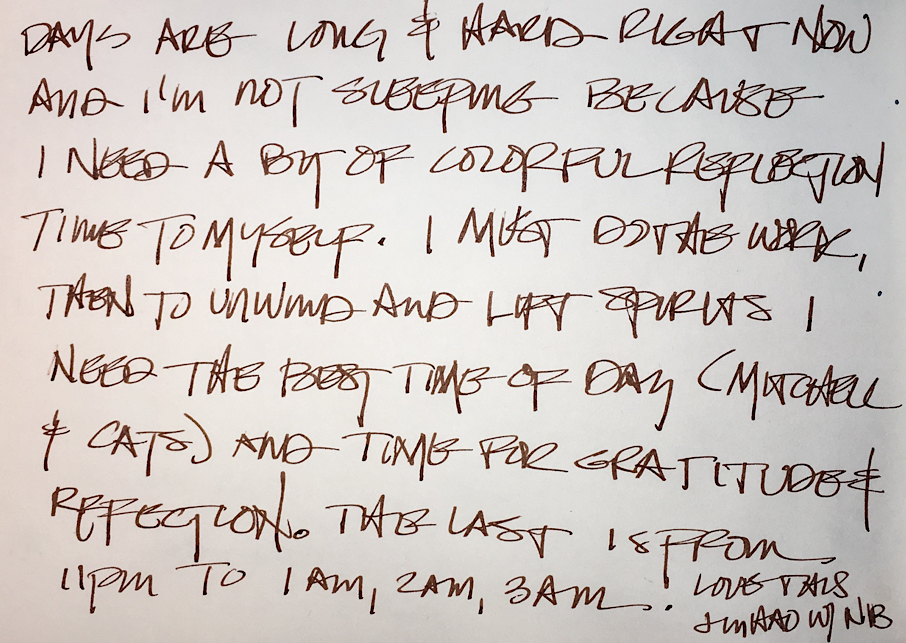 DAYS ARE LONG & HARD RIGHT NOW
AND I'M NOT SLEEPING BECAUSE
I NEED A BIT OF COLORFUL REFLECTION
TIME TO MYSELF. I MUST DO THE WORK,
THEN TO UNWIND AND LIFT SPIRITS I
NEED THE BEST TIME OF DAY (MITCHELL
& CATS) AND TIME FOR GRATITUDE &
REFECTION. THE LAST IS FROM
11PM TO 1AM, 2AM, 3AM!
LOVE THIS
W/ NIB